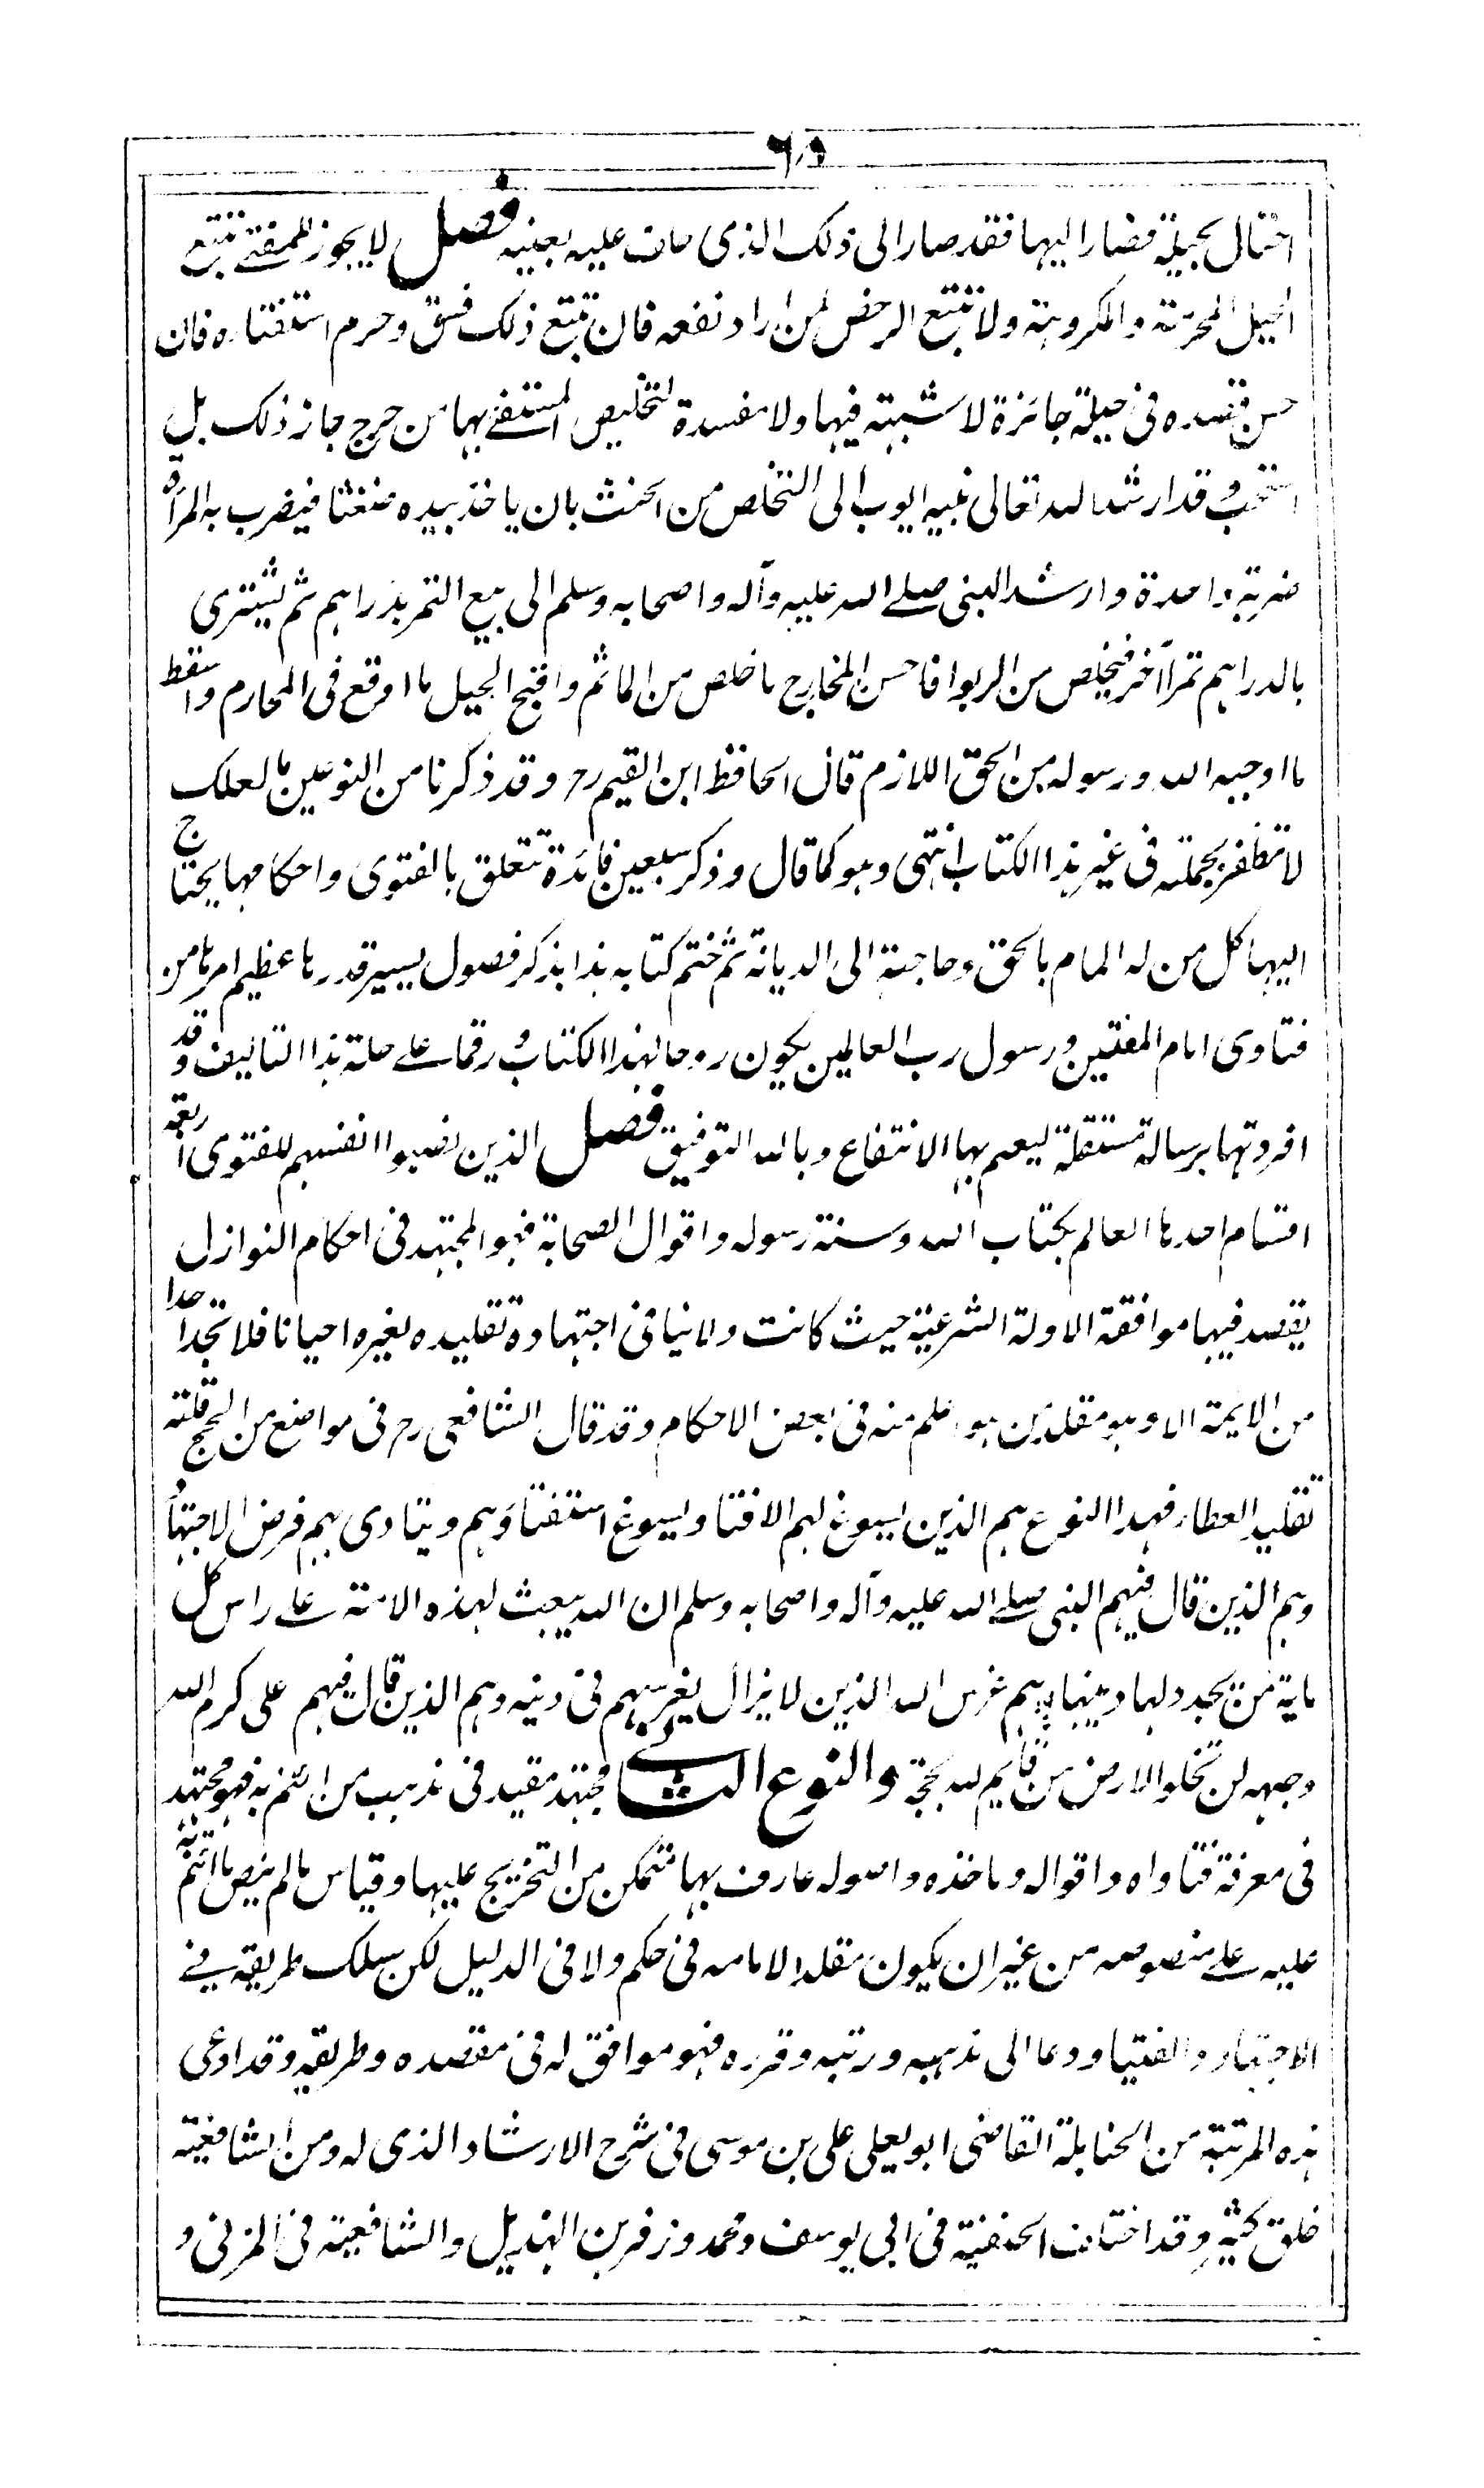 ٦٥
احتال بحيلة فصار اليها فقد صار الى ذلك الذى مات عليه بعينه فصل لا يجوز للمفتى تتبع
الحيل المحرمة والمكروهة ولا تتبع الرخص لمن اراد نفعه فان تتبع ذلك فسق وحرم استفتاره فان
حسن قصده فى حيلة جائزة لا شبهة فيها ولا مفسدة لتخليص المستفتى بها من حرج جاز ذلك بل
استحب وقد ارشد الله تعالى نبيه ايوب الى التخلص من الحنث بان ياخذ بيده ضغثا فيضرب به المرأة
ضربة واحدة وارشد النبى صلے الله عليه وآله واصحابه وسلم الى بيع التمر بدراهم ثم يشترى
بالدراهم تمرا آخر فيخلص من الربوا فاحسن المخارج ما خلص من الماثم واقبح الحيل ما اوقع فى المحارم واسقط
ما اوجبه الله ورسوله من الحق اللازم قال الحافظ ابن القيم رح وقد ذكرنا من النوعين ما لعلك
لا تظفر بجملته فى غير هذا الكتاب انتهى وهو كما قال وذكر سبعين فائدة تتعلق بالفتوى واحكامها يحتاج
اليها كل من له المام بالحق وحاجة الى الديانة ثم ختم كتابه هذا بذكر فصول يسير قدرها عظيم امرها من
فتاوى امام المفتين ورسول رب العالمين يكون روحا لهذا الكتاب ورقما على حلة هذا التاليف وقد
افردتها برسالة مستقلة ليعم بها الانتفاع وبالله التوفيق فصل الذين نصبوا انفسهم للفتوى اربعة
اقسام احدها العالم بكتاب الله وسنة رسوله واقوال الصحابة فهو المجتهد فى احكام النوازل
يقصد فيها موافقة الادلة الشرعية حيث كانت ولا ينافى اجتهاده تقليده لغيره احيانا فلا تجد احدا
من الايمة الا وهو مقلد من هو اعلم منه فى بعض الاحكام وقد قال الشافعى رح فى مواضع من الحج قلته
تقليد العطار فهذا النوع هم الذين يسوغ لهم الافتا ويسوغ استفتاؤهم ويتادى بهم فرض الاجتهاد
وهم الذين قال فيهم النبى صلے الله عليه وآله واصحابه وسلم ان الله يبعث لهذه الامة على راس كل
ماية من يجدد لها دينها وهم غرس الله الذين لا يزال يغرسهم فى دينه وهم الذين قال فيهم على كرم الله
وجهه لن تخلو الارض من قايم لله بحجة والنوع الثانى مجتهد مقيد فى مذهب من ائتم به فهو مجتهد
فى معرفة فتاواه واقواله وماخذه واصوله عارف بها متمكن من التخريج عليها وقياس ما لم ينص ما ائتم به
عليه على منصوصه من غير ان يكون مقلدا لامامه فى حكم ولا فى الدليل لكن سلك طريقه فے
الاجتهاد والفتيا ودعا الى مذهبه ورتبه وقرره فهو موافق له فى مقصده وطريقه وقد ادعى
هذه المرتبة من الحنابلة القاضى ابو يعلى على بن موسى فى شرح الارشاد الذى له ومن الشافعية
خلق كثير وقد اختلف الحنفية فى ابى يوسف ومحمد وزفر بن الهذيل والشافعية فى المزنى و